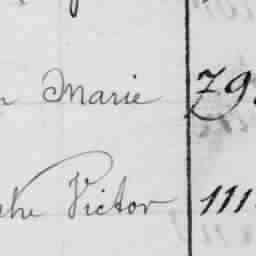 Marie 79
Victor 111